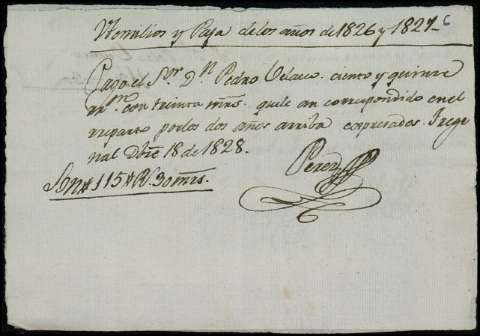 Utensilios y Paja de los años de 1826 y 1827 6
Pago el Sor. Dn. Pedro Velasco ciento y quince
rrs. con treinta mrs. que le an correspondido en el
reparto por los dos años arriba espresados. Frege
nal Dbre 18 de 1828.
Perez
Son # 115 # Rs. 30 mrs.